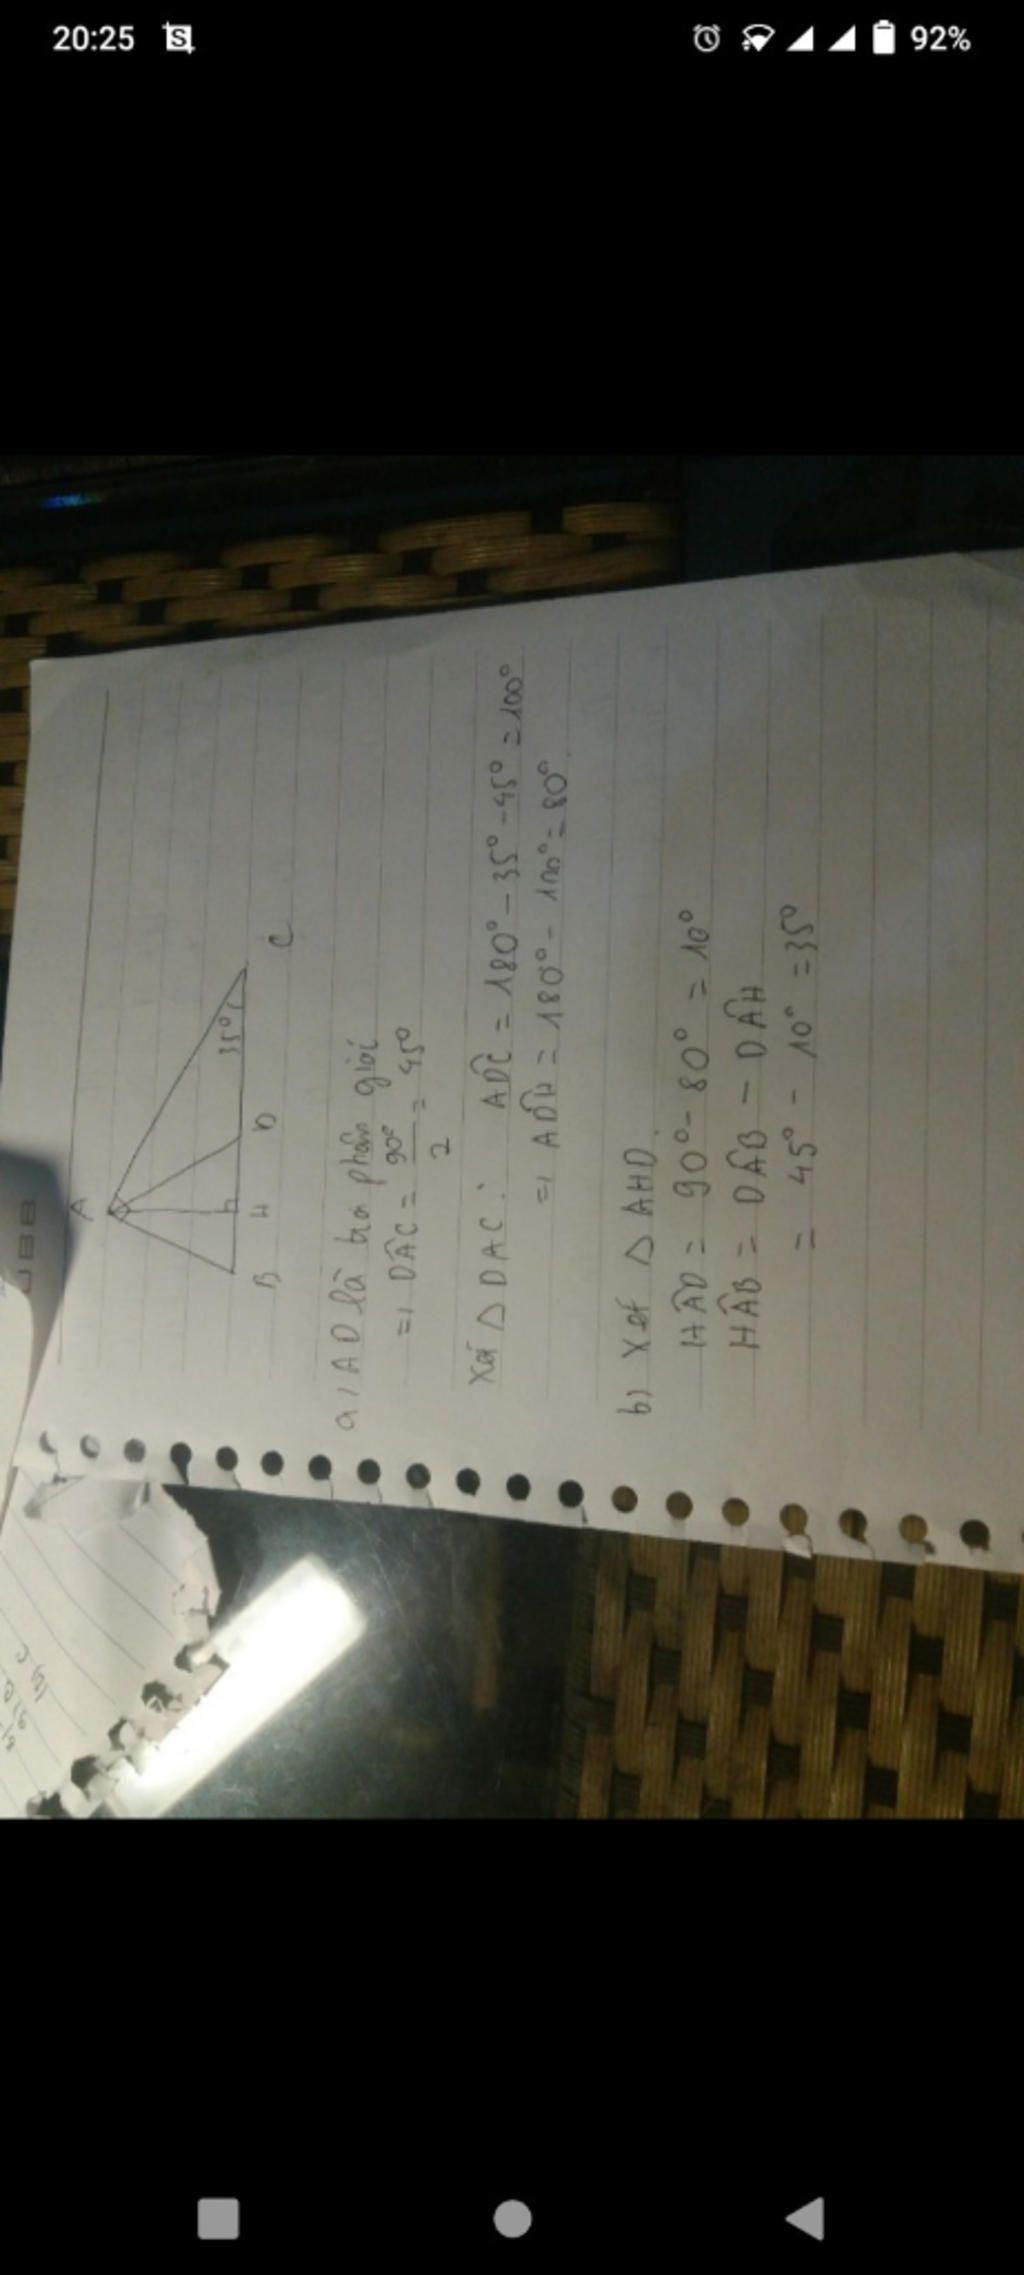 20:25
92%
UBB
A
35°
B H D C
a, AD là tia phân giác
=, DAC = 90°/2 = 45°
Xét △ DAC: ADC = 180° - 35° - 45° = 100°
=, ADH = 180° - 100° = 80°.
b, Xét △ AHD.
HAD = 90° - 80° = 10°
HAB = DAB - DAH
= 45° - 10° = 35°